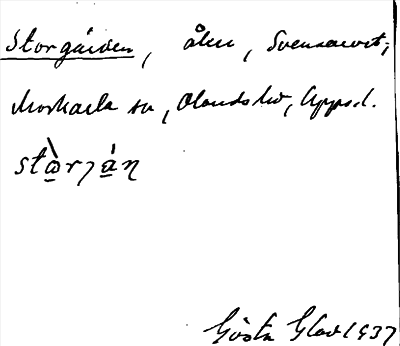 Storgården, åker, Svensarvet,
Morkarla sn, Olands hd, Uppsl.
stɷ̀rɉán
Gösta Glad 1937